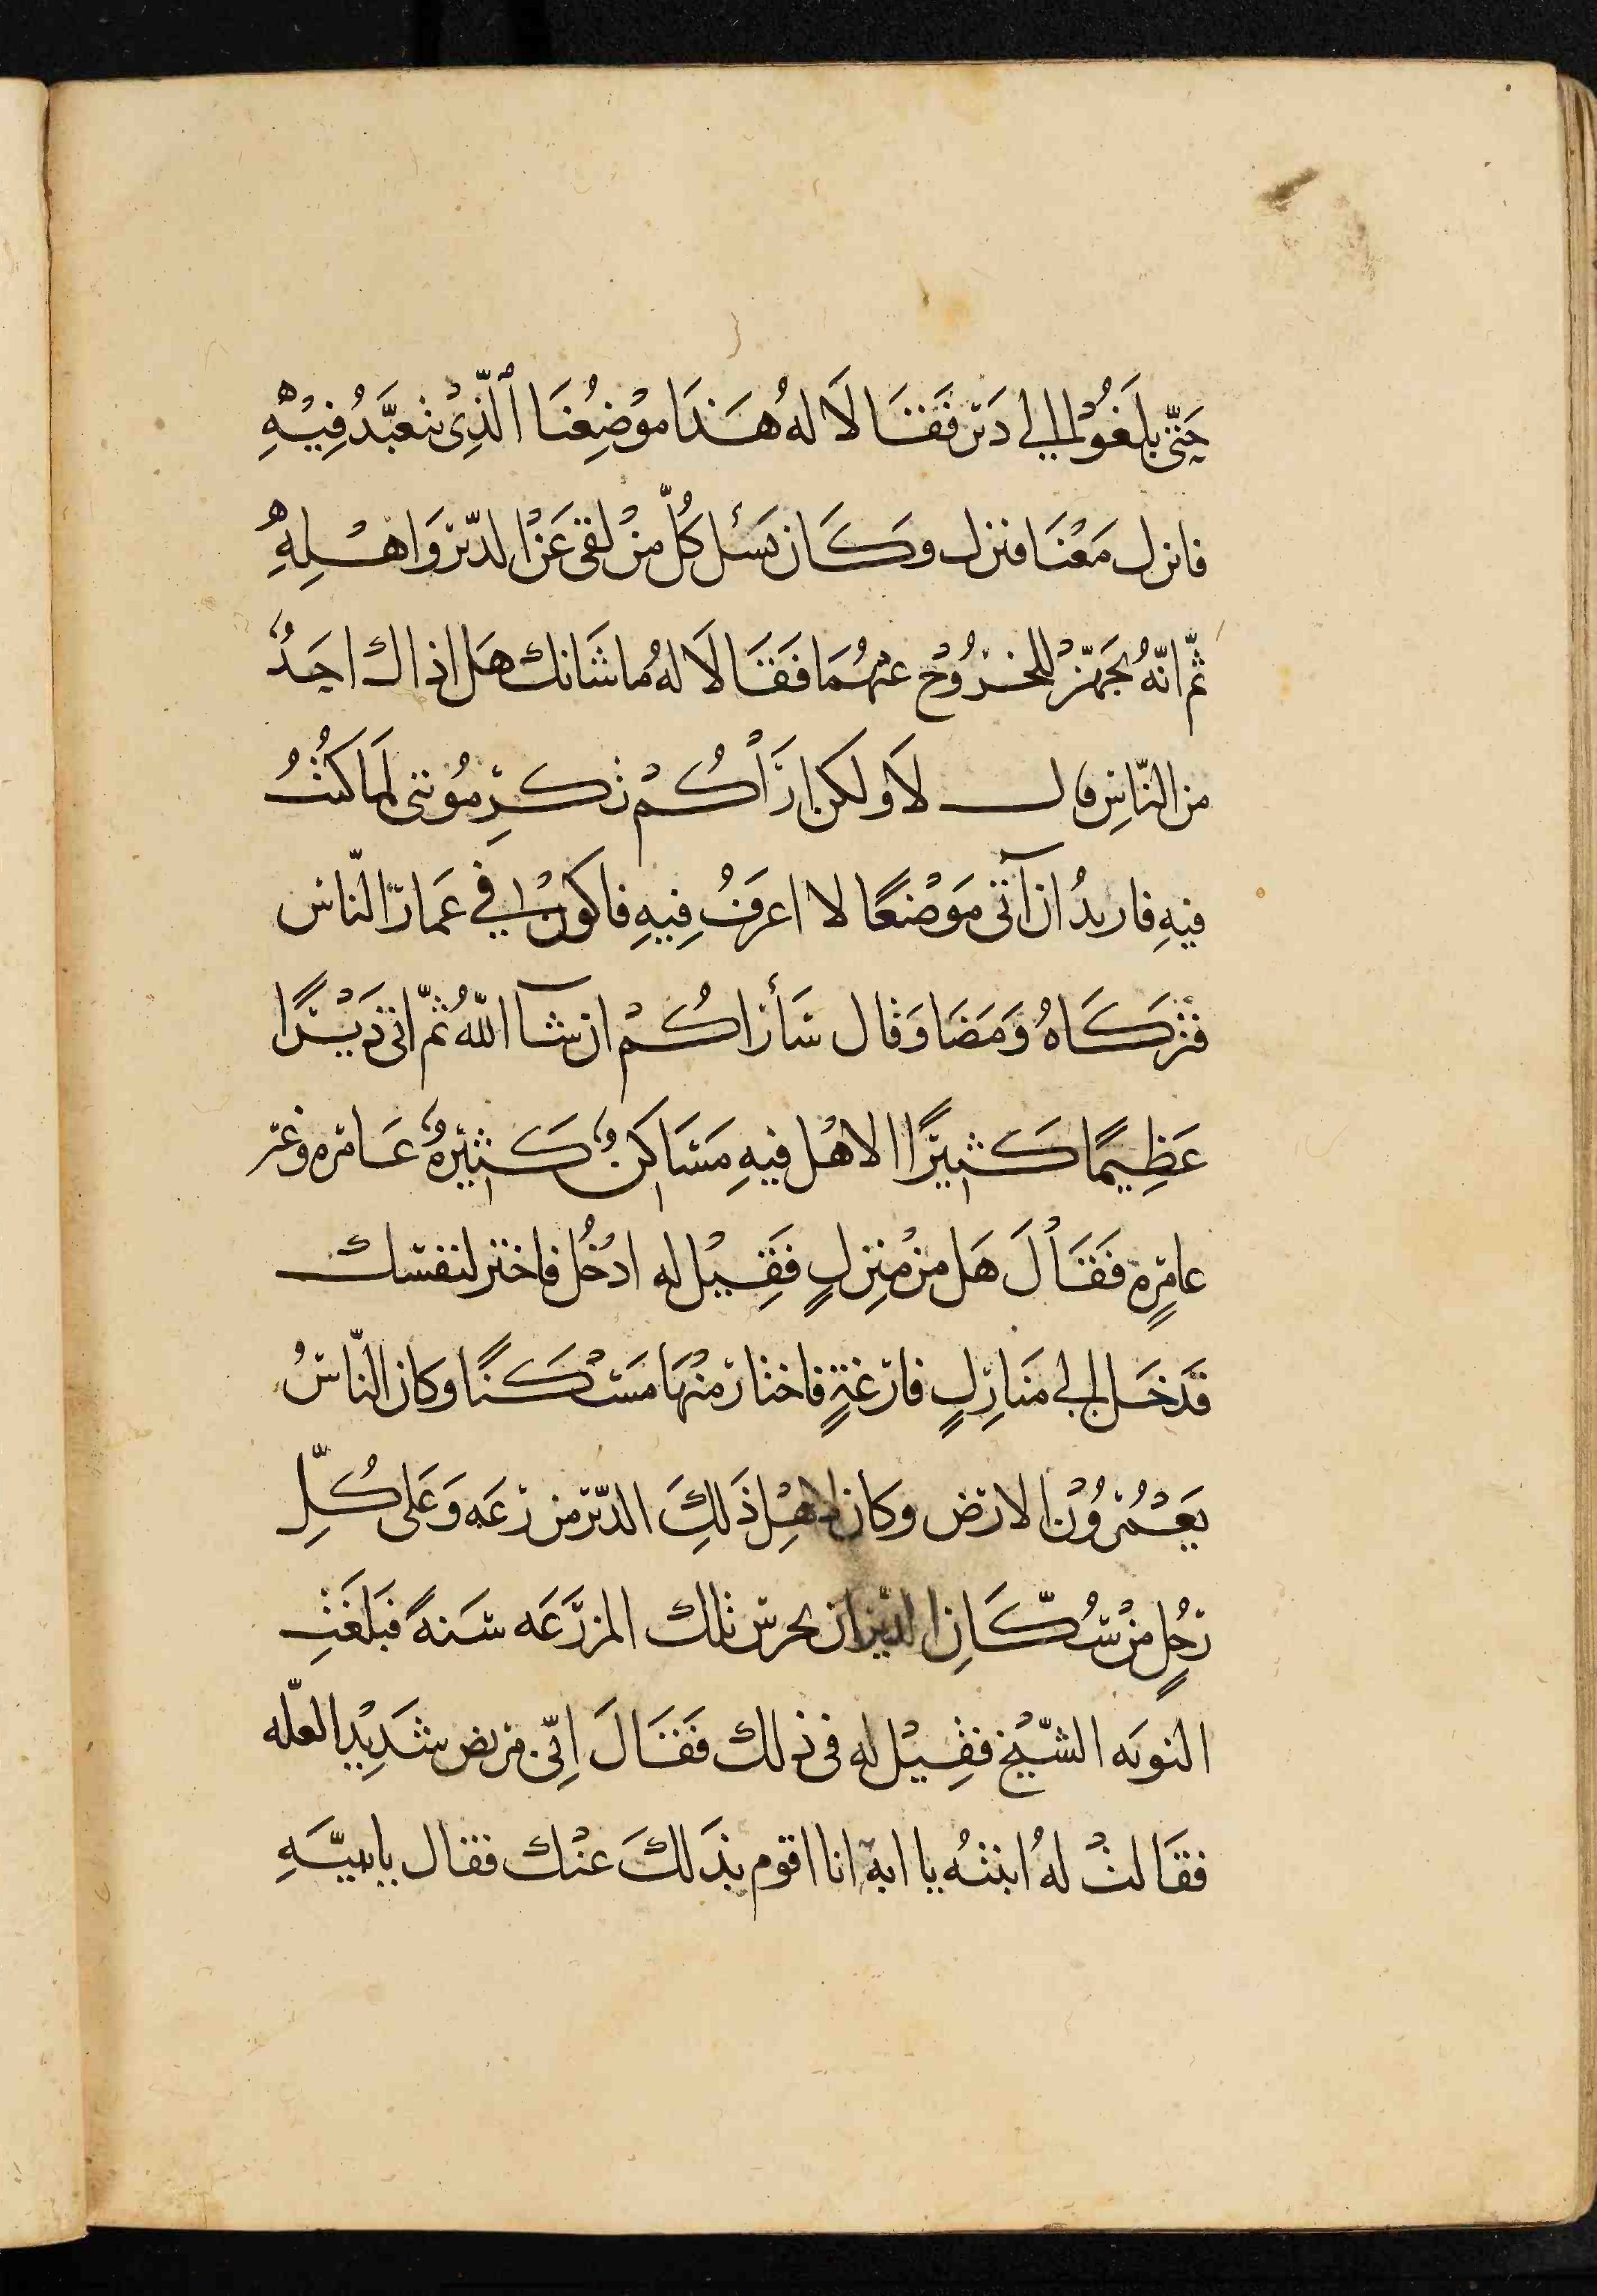 حَتّىٰ بلَغُوْا إلى دَير فَقَالَا لهُ هَذَا موْضِعُنَا الَّذِىْ نتعَبَّدُ فِيْهِ
فانزل مَعْنَا فنزل وكَان يَسْئل كُلّ منْ لقى عَنْ الدّير وَاهْلِهِ
ثمّ انّهُ تجَهّزْ للخرُوْج عنْهُمَا فَقَالَا لهُ ما شَانك هَل اذاك احَدٌ
من النّاسِ قال لَا ولكن ارَاكُمْ تكرِّموُننى لما كنْتُ
فيهِ فاريدُ ان آتى مَوْضعًا لا اعرَفُ فِيهِ فاكوُنْ في عمَار النّاس
فتركَاهُ وَمَضَا وَقال سَأراكُمْ ان شآ اللّهُ ثمّ اتى دَيْرًا
عَظِيمًا كَثيرًا الاهْل فيهِ مَسَاكنٌ كَثيْرهٌ عَامره وغير
عامرٍه فَقَالَ هَل منْ منزِلٍ فَقِيْل له ادْخُل فاختر لنفسك
فدَخَل إلى مَنازِلٍ فارغةٍ فاختار منْهَا مَسْكَنًا وكان النّاسُ
يَعْمُروُنْ الارض وكان لاهْل ذَلِكَ الدّير مزرعَه وَعَلى كُلِّ
رجُلٍ منْ سُكَّانِ الدّير ان يحرس تلك المزرَعَه سَنهً فبَلغَتِ
النوبَه الشّيْخ فقِيْل له فى ذلك فَقَالَ اِنّى مريض شَدِيْد العلّه
فقَالتْ لهُ ابنتُه يا ابه انا اقوم بذَلكَ عنْك فقال يا بنيّهِ